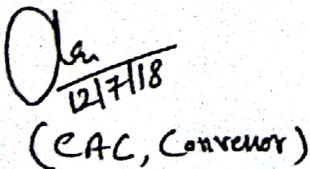 12/7/18
(CAC, Convenor)